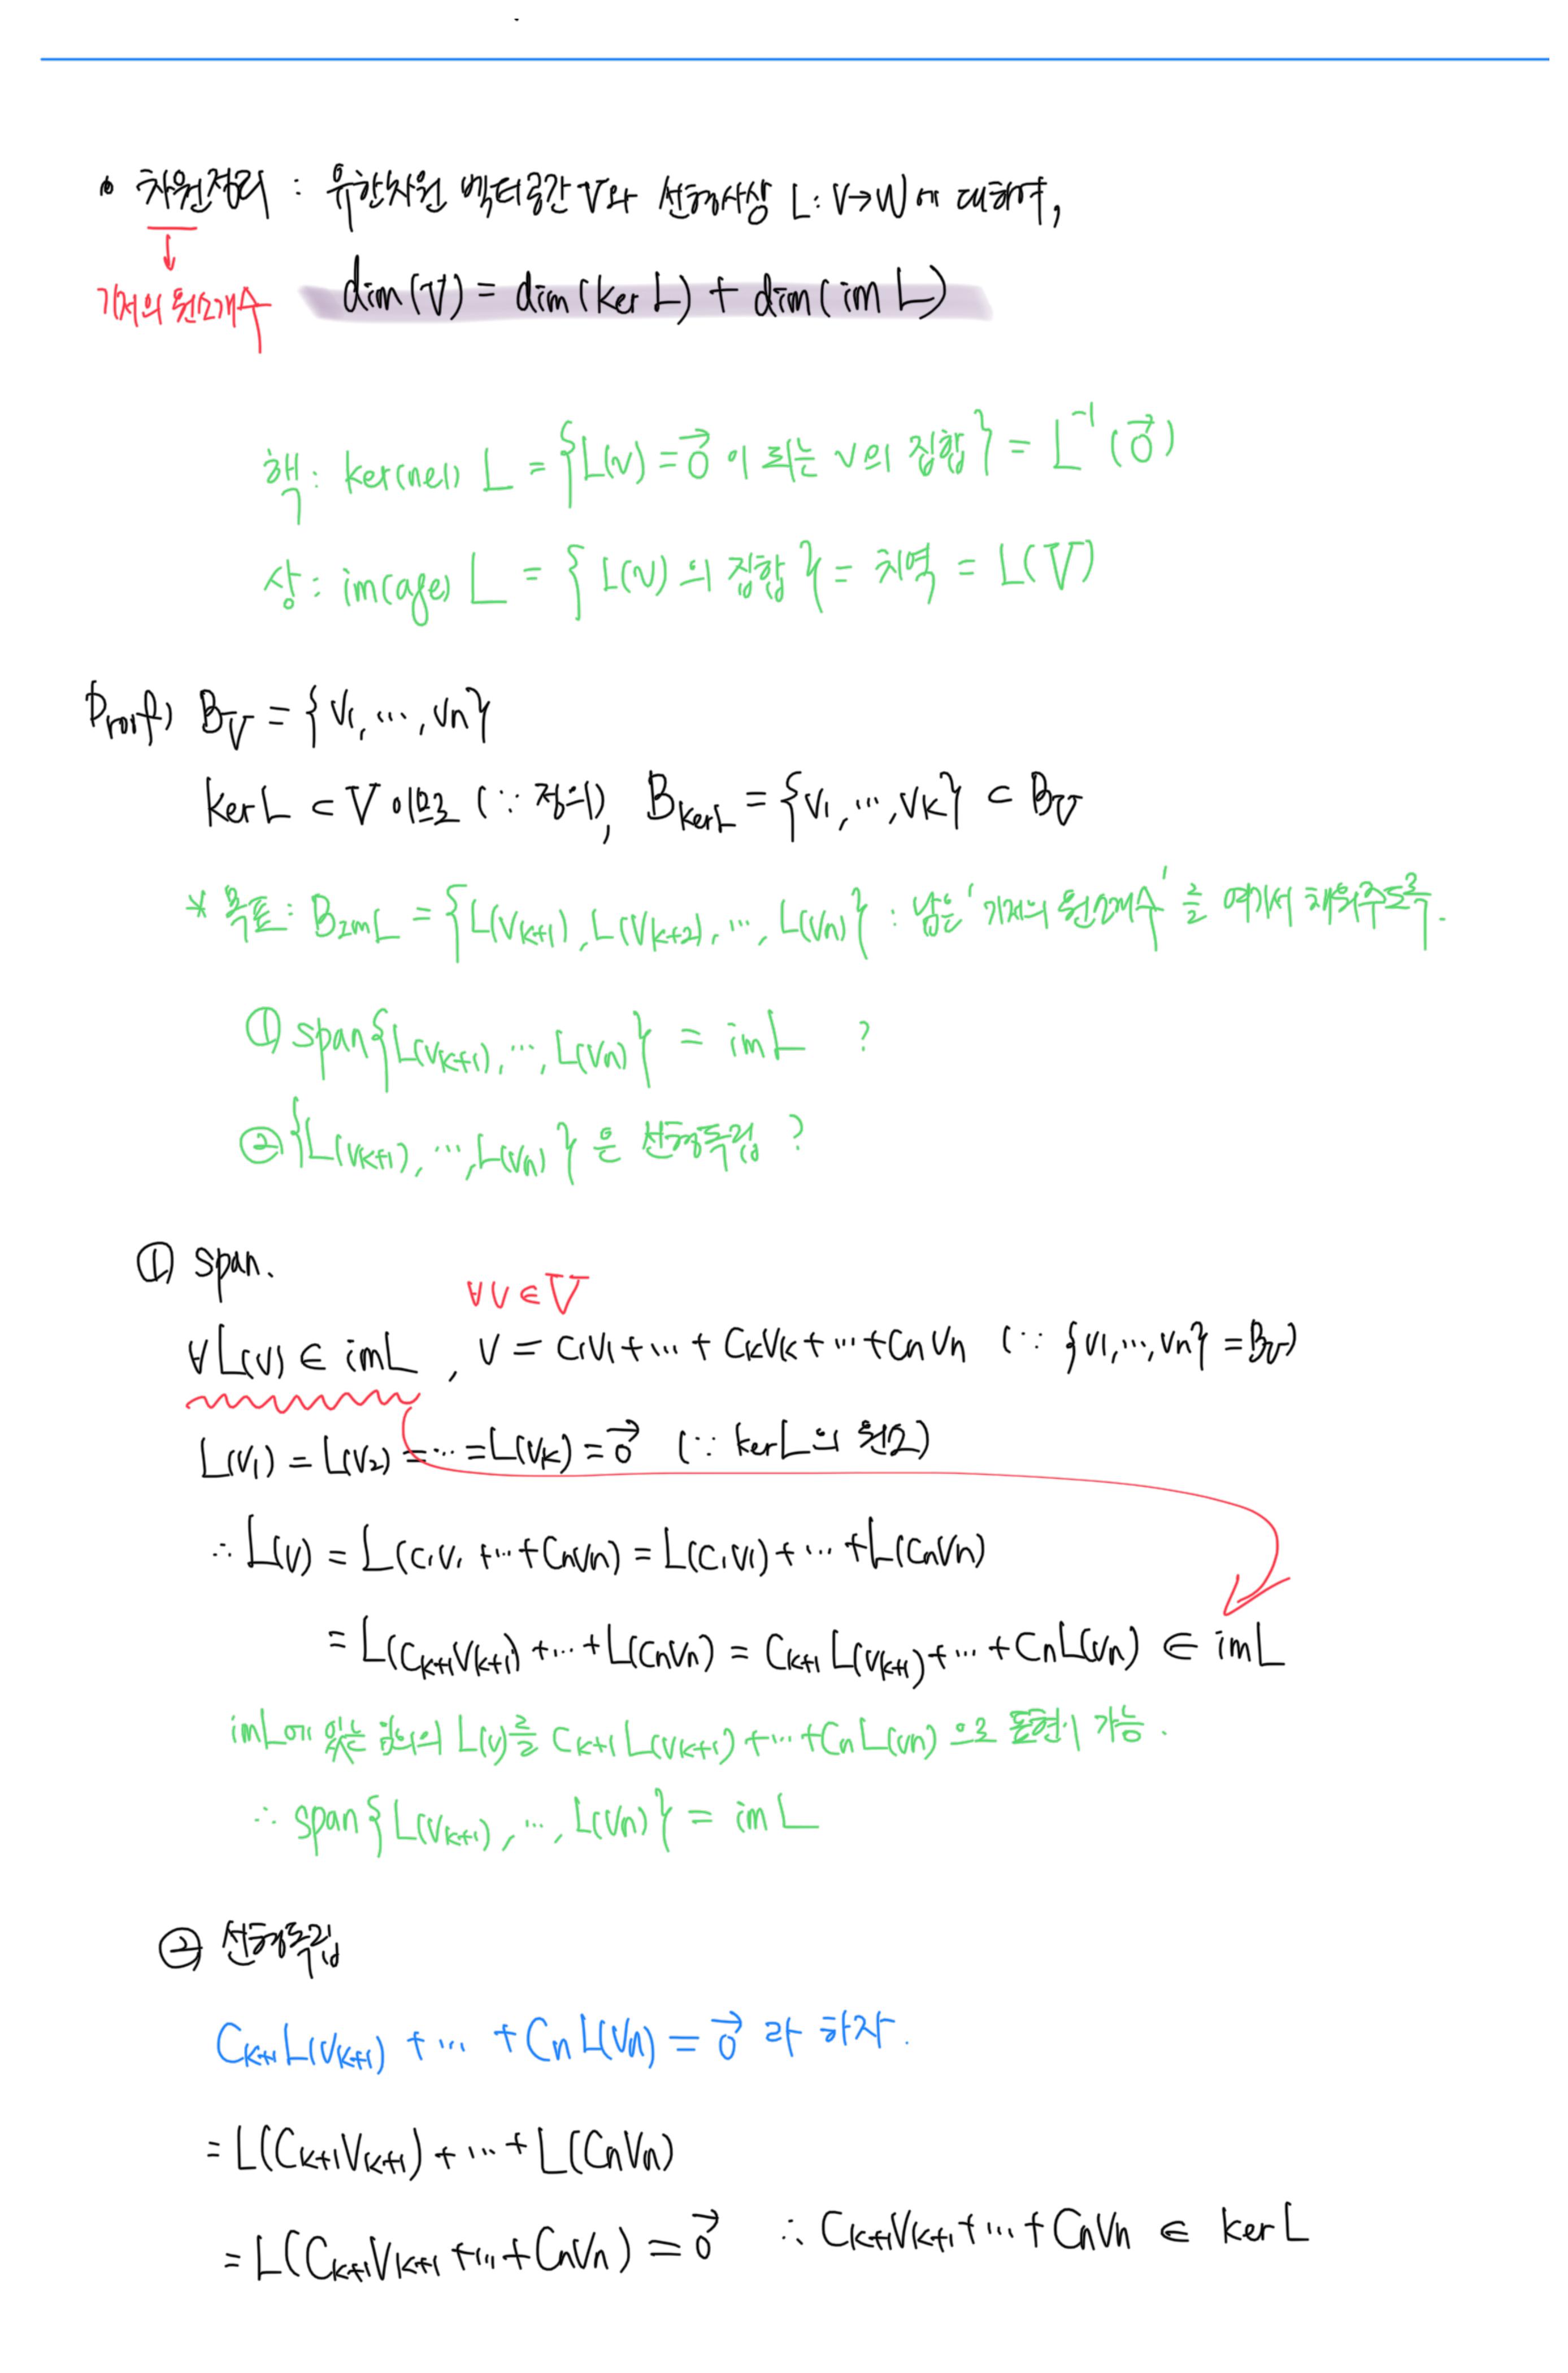 • 차원정리 : 유한차원 벡터공간 V와 선형사상 L: V→W에 대하여,
기저의 원소개수
dim(V) = dim(ker L) + dim(im L)
핵: ker(nel) L = {L(v) = 0⃗ 이 되는 v의 집합} = L⁻¹(0⃗)
상: im(age) L = { L(v)의 집합 } = 치역 = L(V)
Proof) B_V = {v₁, ⋯, vₙ}
ker L ⊂ V 이므로 (∵ 정의), B_kerL = {v₁, ⋯, vₖ} ⊂ B_V
* 목표: B_ImL = {L(vₖ₊₁), L(vₖ₊₂), ⋯, L(vₙ)} : 남은 '기저의 원소개수'를 여기서 채워주도록.
① span{L(vₖ₊₁), ⋯, L(vₙ)} = im L ?
② {L(vₖ₊₁), ⋯, L(vₙ)} 은 선형독립 ?
① span.
∀v ∈ V
∀L(v) ∈ imL , v = c₁v₁ + ⋯ + cₖvₖ + ⋯ + cₙvₙ (∵ {v₁, ⋯, vₙ} = B_V)
L(v₁) = L(v₂) = ⋯ = L(vₖ) = 0⃗ (∵ kerL의 원소)
∴ L(v) = L(c₁v₁ + ⋯ + cₙvₙ) = L(c₁v₁) + ⋯ + L(cₙvₙ)
= L(cₖ₊₁vₖ₊₁) + ⋯ + L(cₙvₙ) = cₖ₊₁L(vₖ₊₁) + ⋯ + cₙL(vₙ) ∈ imL
imL에 있는 임의의 L(v)를 cₖ₊₁L(vₖ₊₁) + ⋯ + cₙL(vₙ) 으로 표현이 가능.
∴ span{L(vₖ₊₁), ⋯, L(vₙ)} = im L
② 선형독립
cₖ₊₁L(vₖ₊₁) + ⋯ + cₙL(vₙ) = 0⃗ 라 하자.
= L(cₖ₊₁vₖ₊₁) + ⋯ + L(cₙvₙ)
= L(cₖ₊₁vₖ₊₁ + ⋯ + cₙvₙ) = 0⃗ ∴ cₖ₊₁vₖ₊₁ + ⋯ + cₙvₙ ∈ ker L